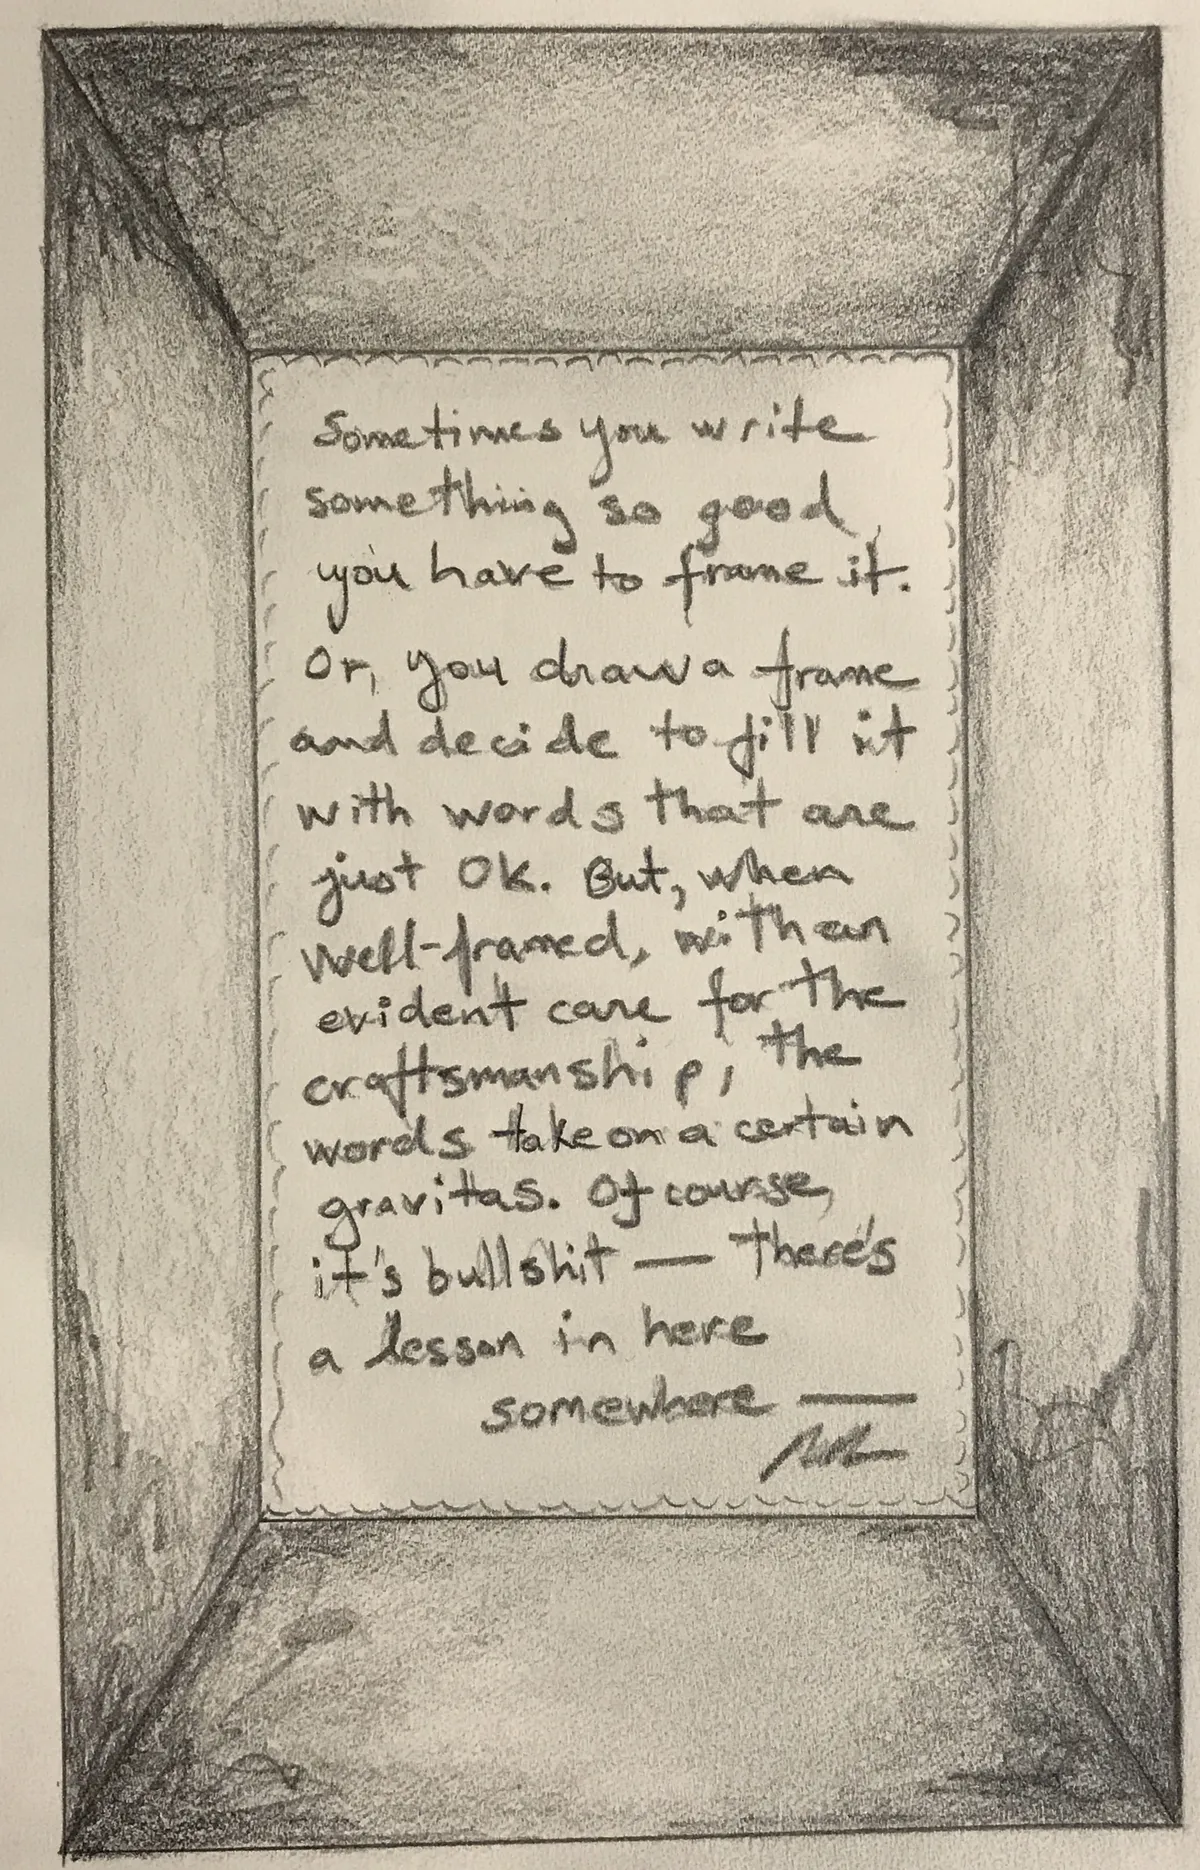 Sometimes you write
something so good,
you have to frame it.
Or, you draw a frame
and decide to fill it
with words that are
just OK. But, when
well-framed, with an
evident care for the
craftsmanship, the
words take on a certain
gravitas. Of course,
it's bullshit — there's
a lesson in here
somewhere —